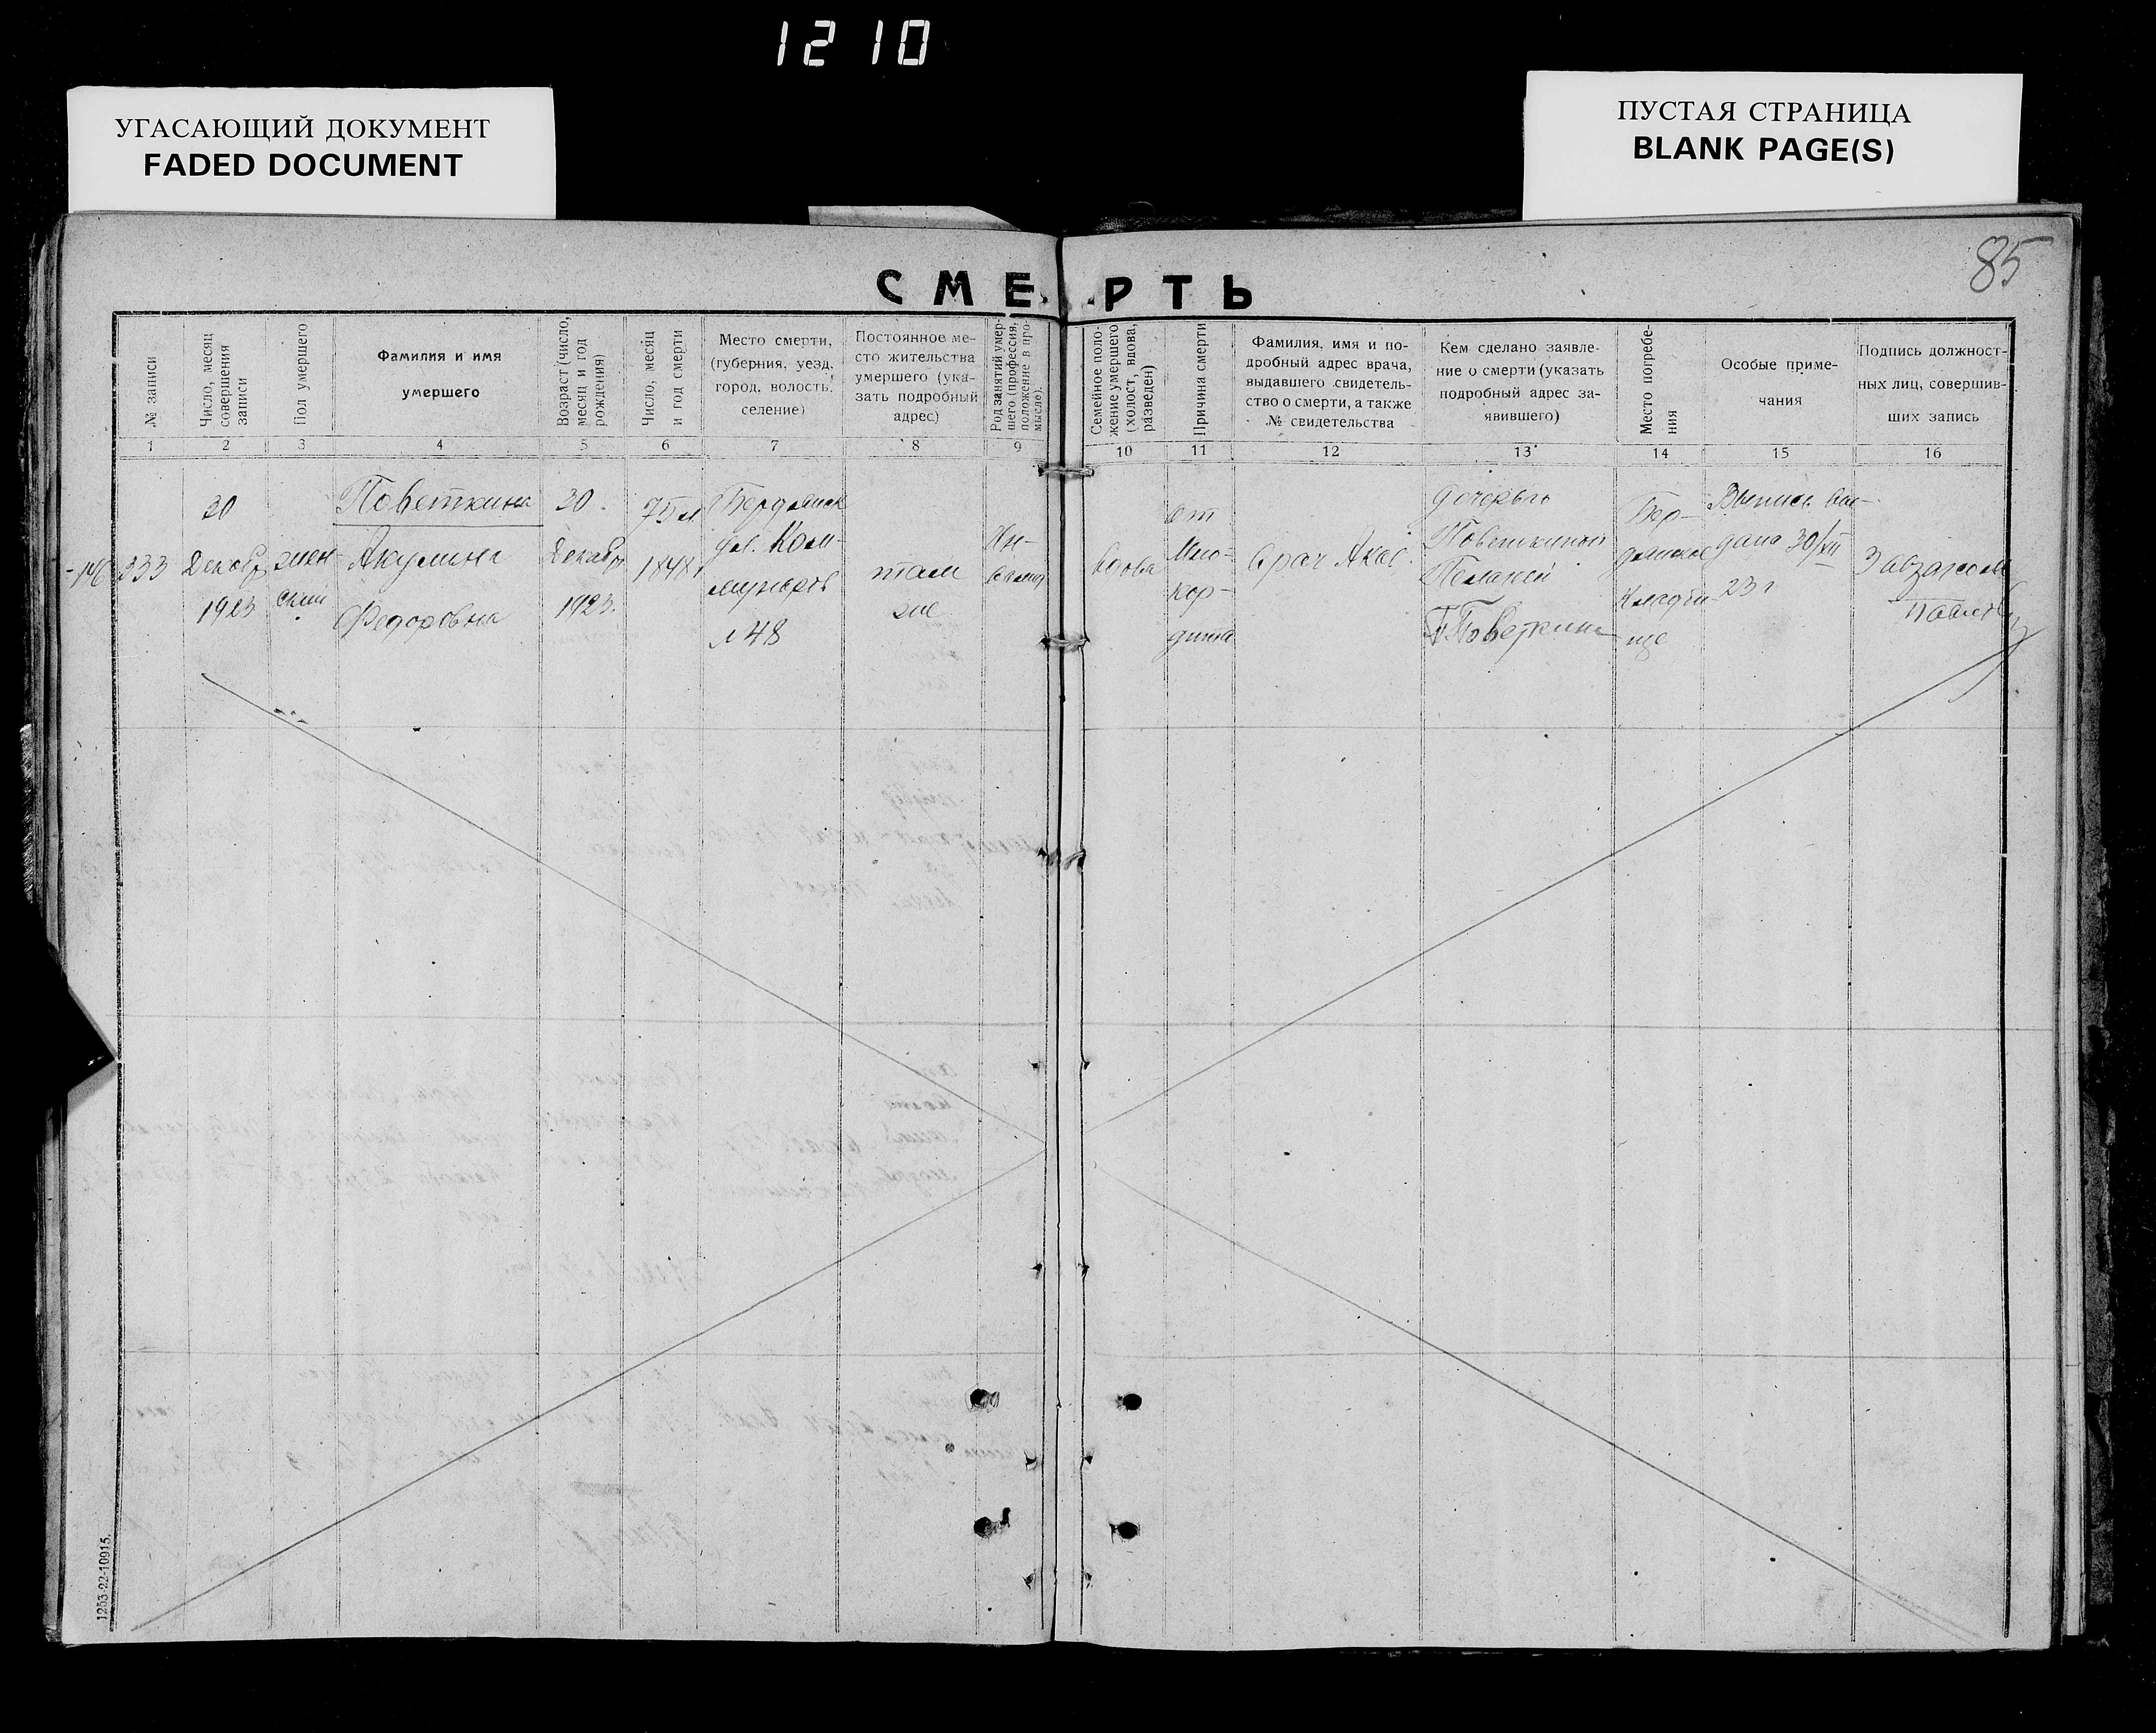 1210
УГАСАЮЩИЙ ДОКУМЕНТ
FADED DOCUMENT
ПУСТАЯ СТРАНИЦА
BLANK PAGE(S)
85
СМЕРТЬ
№ записи
Число, месяц
совершения
записи
Пол умершего
Фамилия и имя
умершего
Возраст (число,
месяц и год
рождения)
Число, месяц
и год смерти
Место смерти,
(губерния, уезд,
город, волость,
селение)
Постоянное ме-
сто жительства
умершего (ука-
зать подробный
адрес)
Род занятий умер-
шего (профессия,
положение в про-
мысле).
Семейное поло-
жение умершего
(холост, вдова,
разведен)
Причина смерти
Фамилия, имя и по-
дробный адрес врача,
выдавшего свидетель-
ство о смерти, а также
№ свидетельства
Кем сделано заявле-
ние о смерти (указать
подробный адрес за-
явившего)
Место погребе-
ния
Особые приме-
чания
Подпись должност-
ных лиц, совершив-
ших запись
1 2 3 4 5 6 7 8 9 10 11 12 13 14 15 16
-146
333
30
Декабр
1923
жен-
ский
Поветкина
Акулина
Федоровна
30.
Декабр
1923.
75 л
1848 г
Бердянск
ул. Ком-
мунаров
№ 48
там
же
Ин-
валид
вдова
от
Мио-
кар-
дита
врач
дочерью
Поветкиной
Пелагеей
П Поветкина
Бер-
дянское
кладби-
ще
Выпись вы-
дана 30/XII
23 г
Завзагсом
1253-22-10915.